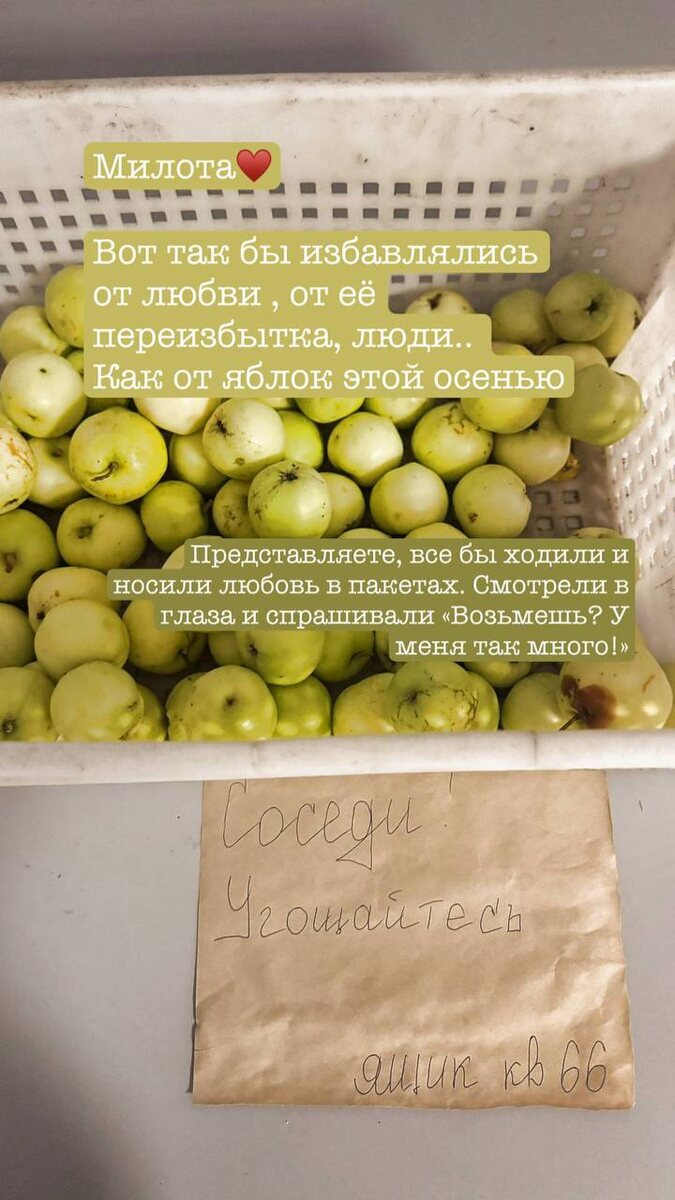 Милота♥️
Вот так бы избавлялись
от любви , от её
переизбытка, люди..
Как от яблок этой осенью
Представляете, все бы ходили и
носили любовь в пакетах. Смотрели в
глаза и спрашивали «Возьмешь? У
меня так много!»
Соседи!
Угощайтесь
ящик кв 66